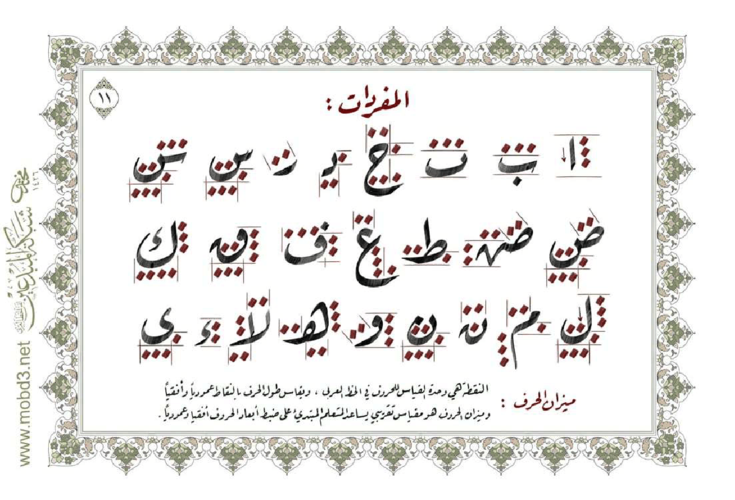 ١١
المفردات :
ا ب ت ج د ر س ش
ض ض ط ع ف ق ك
ل م ن ن و ه لا ء ي
ميزان الحرف : النقطة هي وحدة لقياس للحروف في الخط العربي ، ويقاس طول الحرف بالنقاط عمودياً وأفقياً
وميزان الحروف هو مقياس تقريبي يساعد المتعلم المبتدئ على ضبط أبعاد الحروف أفقياً وعمودياً .
شبكة المبدعين
١٤٢٦
www.mobd3.net